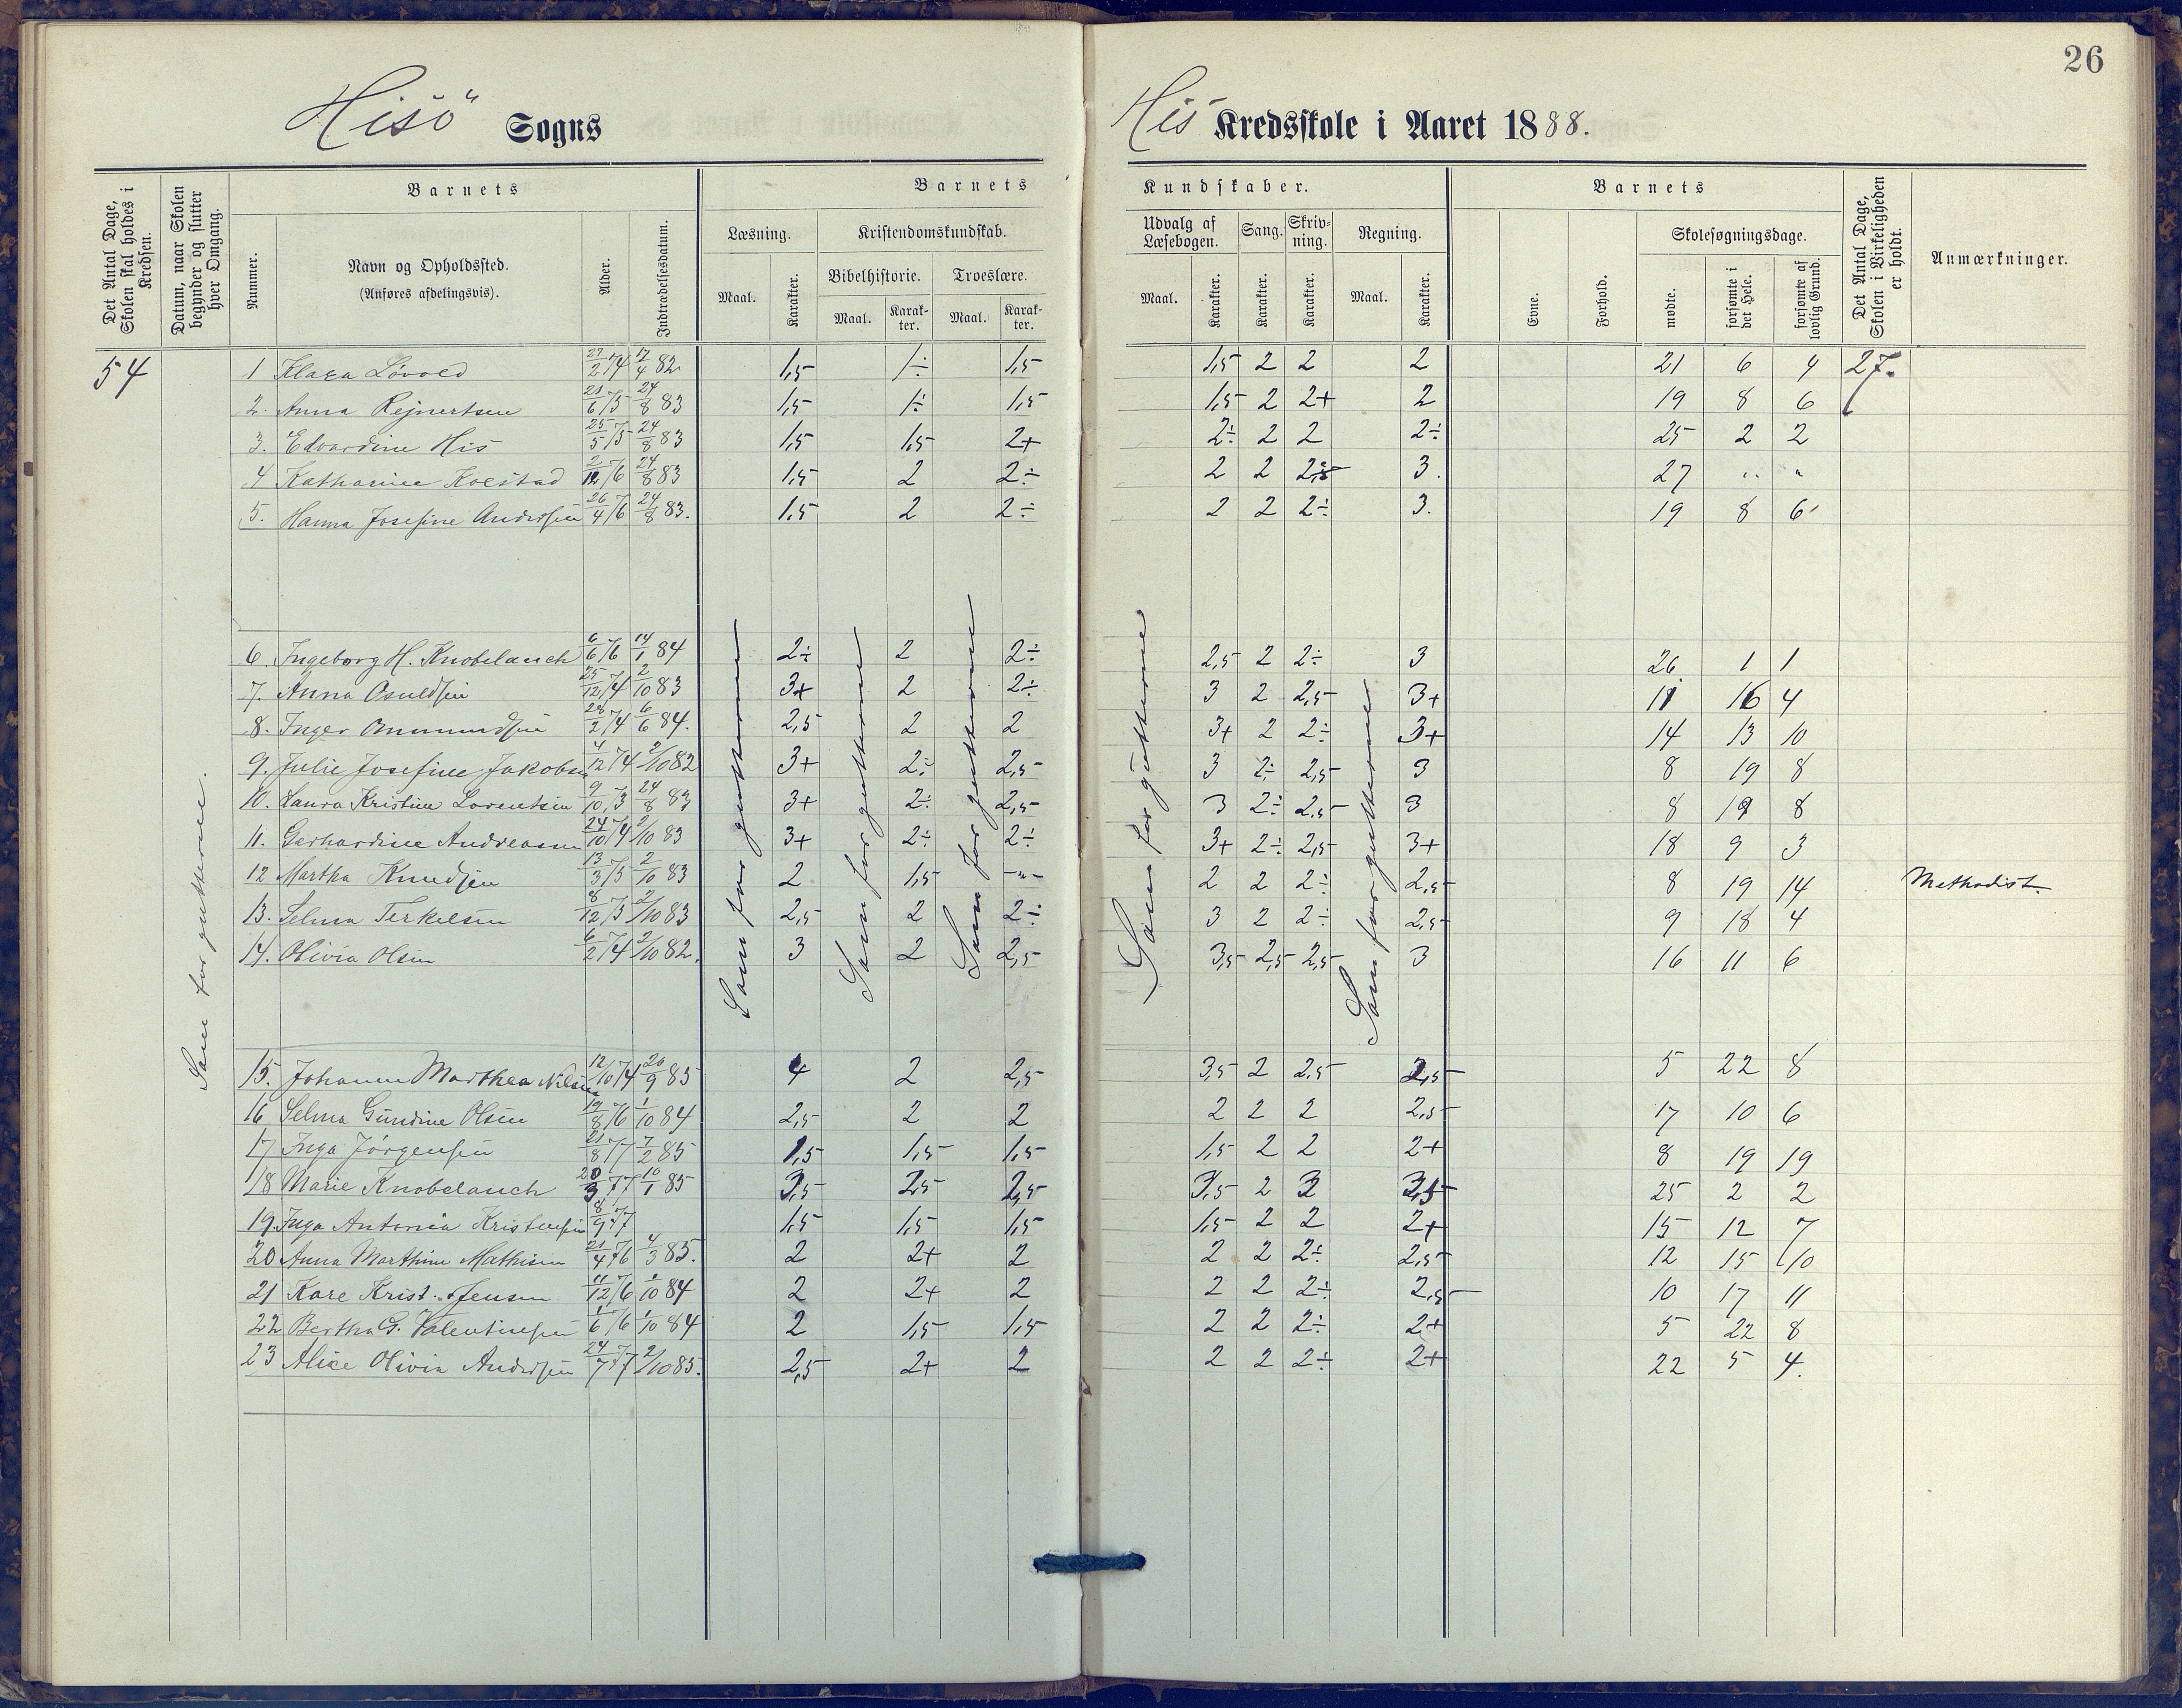 26
Hisö Sogns
His Kredsskole i Aaret 1888.
Det Antal Dage, Skolen skal holdes i Kredsen.
Datum, naar Skolen begynder og slutter hver Omgang.
Barnets
Nummer.
Navn og Opholdssted.
(Anføres afdelingsvis).
Alder.
Indtrædelsesdatum.
Barnets Kundskaber.
Læsning.
Kristendomskundskab.
Udvalg af Læsebogen.
Sang.
Skrivning.
Regning.
Bibelhistorie.
Troeslære.
Maal. Karakter. Maal. Karakter. Maal. Karakter. Maal. Karakter. Karakter. Karakter. Maal. Karakter.
Barnets
Evne.
Forhold.
Skolesøgningsdage.
mødte.
forsømte i det Hele.
forsømte af lovlig Grund.
Det Antal Dage, Skolen i Virkeligheden er holdt.
Anmærkninger.
54 1 Klara Lövold 27/2 74 17/4 82 1,5 1÷ 1,5 1,5 2 2 2 21 6 4 27.
2. Anna Rejnertsen 21/6 75 24/8 83 1,5 1÷ 1,5 1,5 2 2+ 2 19 8 6
3. Edvardine His 25/5 75 24/8 83 1,5 1,5 2+ 2÷ 2 2 2÷ 25 2 2
4 Katharine Kolstad 2/12 76 24/8 83 1,5 2 2÷ 2 2 3. 27 " "
5. Hanna Josefine Andersen 26/4 76 24/8 83. 1,5 2 2÷ 2 2 2÷ 3. 19 8 6
6. Ingeborg H. Knobelauch 6/6 76 14/1 84 2÷ 2 2÷ 2,5 2 2÷ 3 26 1 1
7. Anna Osuldsen 25/12 74 2/10 83 3+ 2 2÷ 3 2 2,5 3+ 11 16 4
8. Inger Ommundsen 28/2 74 6/6 84. 2,5 2 2 3+ 2 2÷ 3+ 14 13 10
9. Julie Josefine Jakobsen 4/12 74 2/10 82 3+ 2÷ 2,5 3 2÷ 2,5 3 8 19 8
10. Laura Kristine Lorentsen 9/10 73 24/8 83 3+ 2÷ 2,5 3 2÷ 2,5 3 8 19 8
11. Gerhardine Andreassen 24/10 74 2/10 83 3+ 2÷ 2÷ 3+ 2÷ 2,5 3+ 18 9 3
12 Martha Knudsen 13/3 75 2/10 83 2 1,5 -"- 2 2 2÷ 2,5 8 19 14 Methodist.
13. Selma Terkelsen 8/12 75 2/10 83 2,5 2 2÷ 3 2 2÷ 2,5 9 18 4
14. Olivia Olsen 6/2 74 2/10 82. 3 2 2,5 3,5 2,5 2,5 3 16 11 6
15. Johanne Marthea Nilsen 12/10 74 26/9 85 4 2 2,5 3,5 2 2,5 5 22 8
16 Selma Gundine Olsen 19/8 76 1/10 84 2,5 2 2 2 2 2 2,5 17 10 6
17 Inga Jörgensen 21/8 77 7/2 85 1,5 1,5 1,5 1,5 2 2 2+ 8 19 19
18 Marie Knobelauch 20/3 77 10/1 85 3,5 2,5 2,5 3,5 2 3 3,5 25 2 2
19 Inga Antonia Kristensen 8/9 77 1,5 1,5 1,5 1,5 2 2 2+ 15 12 7
20 Anna Marthine Mathisen 21/4 76 4/3 85. 2 2+ 2 2 2 2÷ 2,5 12 15 10
21 Kare Krist. Jensen 11/12 76 1/10 84 2 2+ 2 2 2 2÷ 2,5 10 17 11
22 Bertha G. Valentinsen 1/6 76 1/10 84 2 1,5 1,5 2 2 2÷ 2+ 5 22 8
23 Alice Olivia Andersen 24/7 77 2/10 85. 2,5 2+ 2 2 2 2÷ 2+ 22 5 4.
Som for gutterne.
Som for gutterne
Som for gutterne
Som for gutterne
Som for gutterne
Som for gutterne